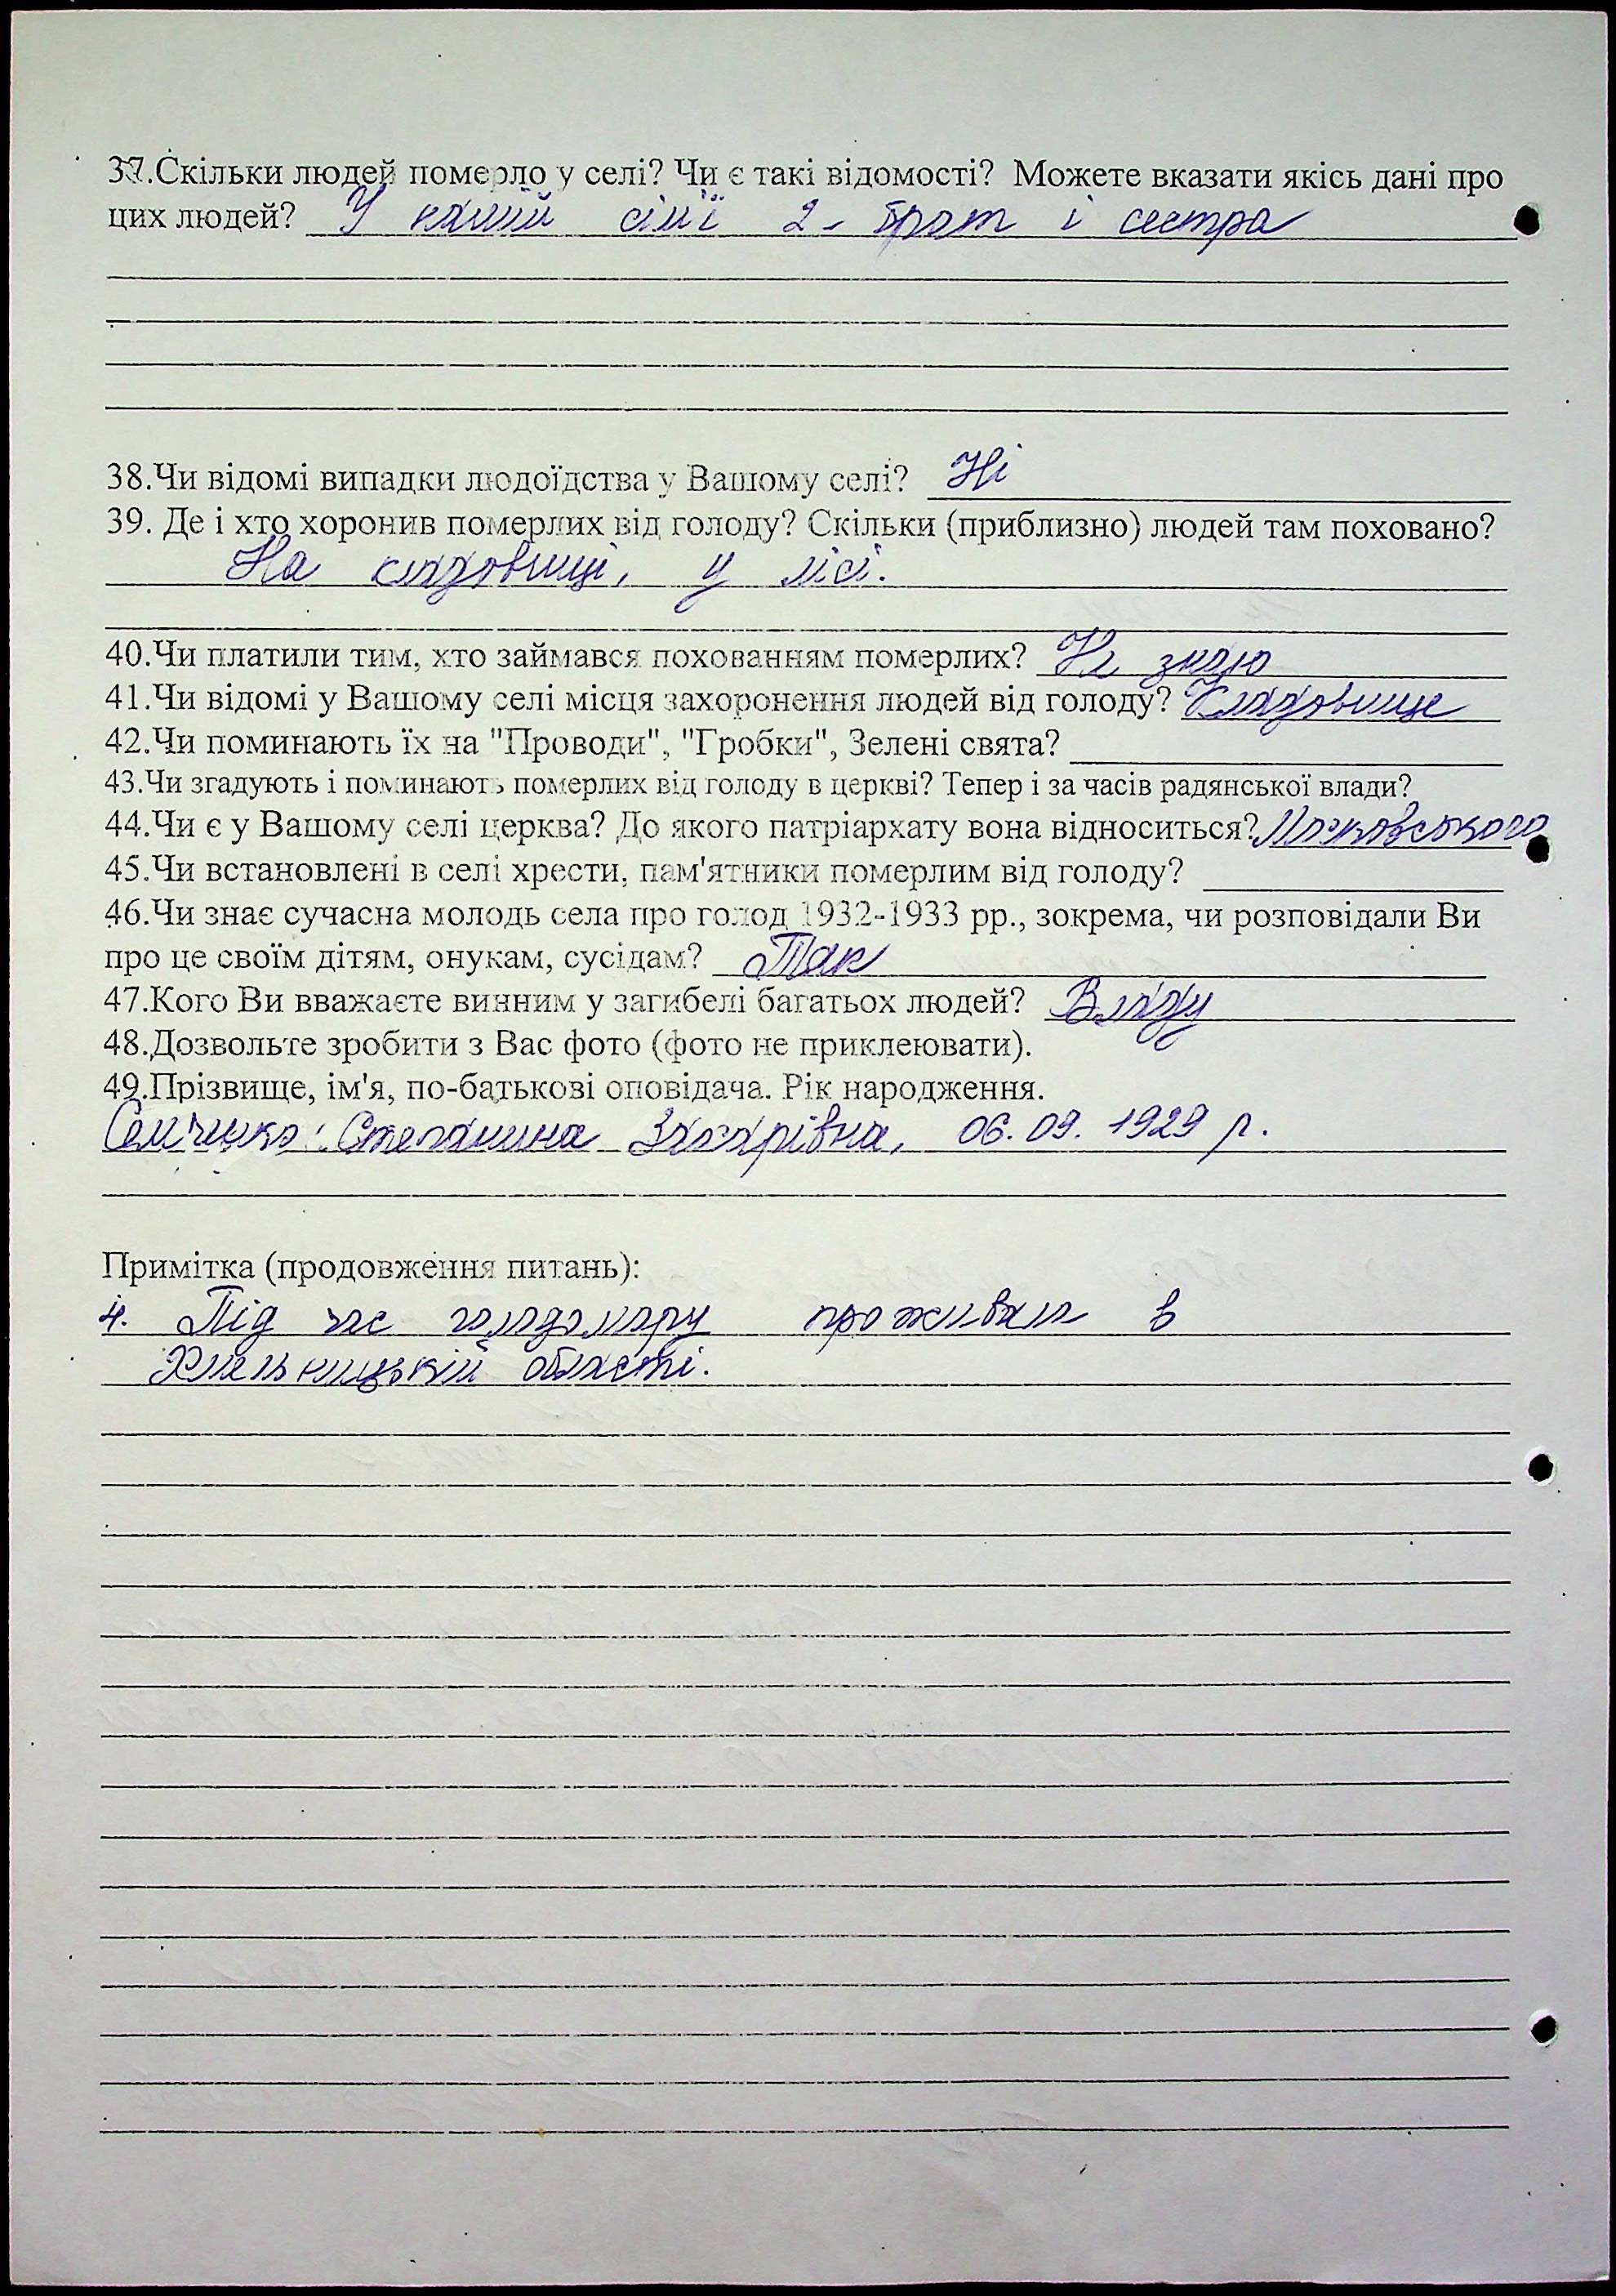 37.Скільки людей померло у селі? Чи є такі відомості? Можете вказати якісь дані про
цих людей? У нашій сімї 2 - брат і сестра
38.Чи відомі випадки людоїдства у Вашому селі? Ні
39. Де і хто хоронив померлих від голоду? Скільки (приблизно) людей там поховано?
На кладовищі, у лісі.
40.Чи платили тим, хто займався похованням померлих? Не знаю
41.Чи відомі у Вашому селі місця захоронення людей від голоду? Кладовище
42.Чи поминають їх на "Проводи", "Гробки", Зелені свята?
43.Чи згадують і поминають померлих від голоду в церкві? Тепер і за часів радянської влади?
44.Чи є у Вашому селі церква? До якого патріархату вона відноситься? Московського
45.Чи встановлені в селі хрести, пам'ятники померлим від голоду?
46.Чи знає сучасна молодь села про голод 1932-1933 рр., зокрема, чи розповідали Ви
про це своїм дітям, онукам, сусідам? Так
47.Кого Ви вважаєте винним у загибелі багатьох людей? Владу
48.Дозвольте зробити з Вас фото (фото не приклеювати).
49.Прізвище, ім'я, по-батькові оповідача. Рік народження.
Степанина Захарівна, 06.09.1929 р.
Примітка (продовження питань):
4. Під час голодомору проживали в
Хмельницькій області.